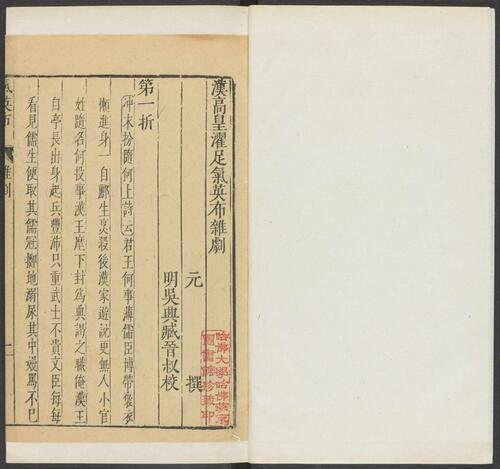 漢高皇濯足氣英布雜劇
元 撰
明吳興臧晉叔校
第一折
冲末扮隨何上詩云君王何事薄儒臣博帶褒衣
懶進身一自酈生烹殺後漢家遊說更無人小官
姓隨名何投事漢王麾下封爲典謁之職俺漢王
自亭長出身起兵豐沛只重武士不貴文臣每每
看見儒生便取其儒冠擲地溺尿其中嫚罵不已
氣英布 雜劇 一
哈佛大學哈佛燕京
圖書館珍藏印